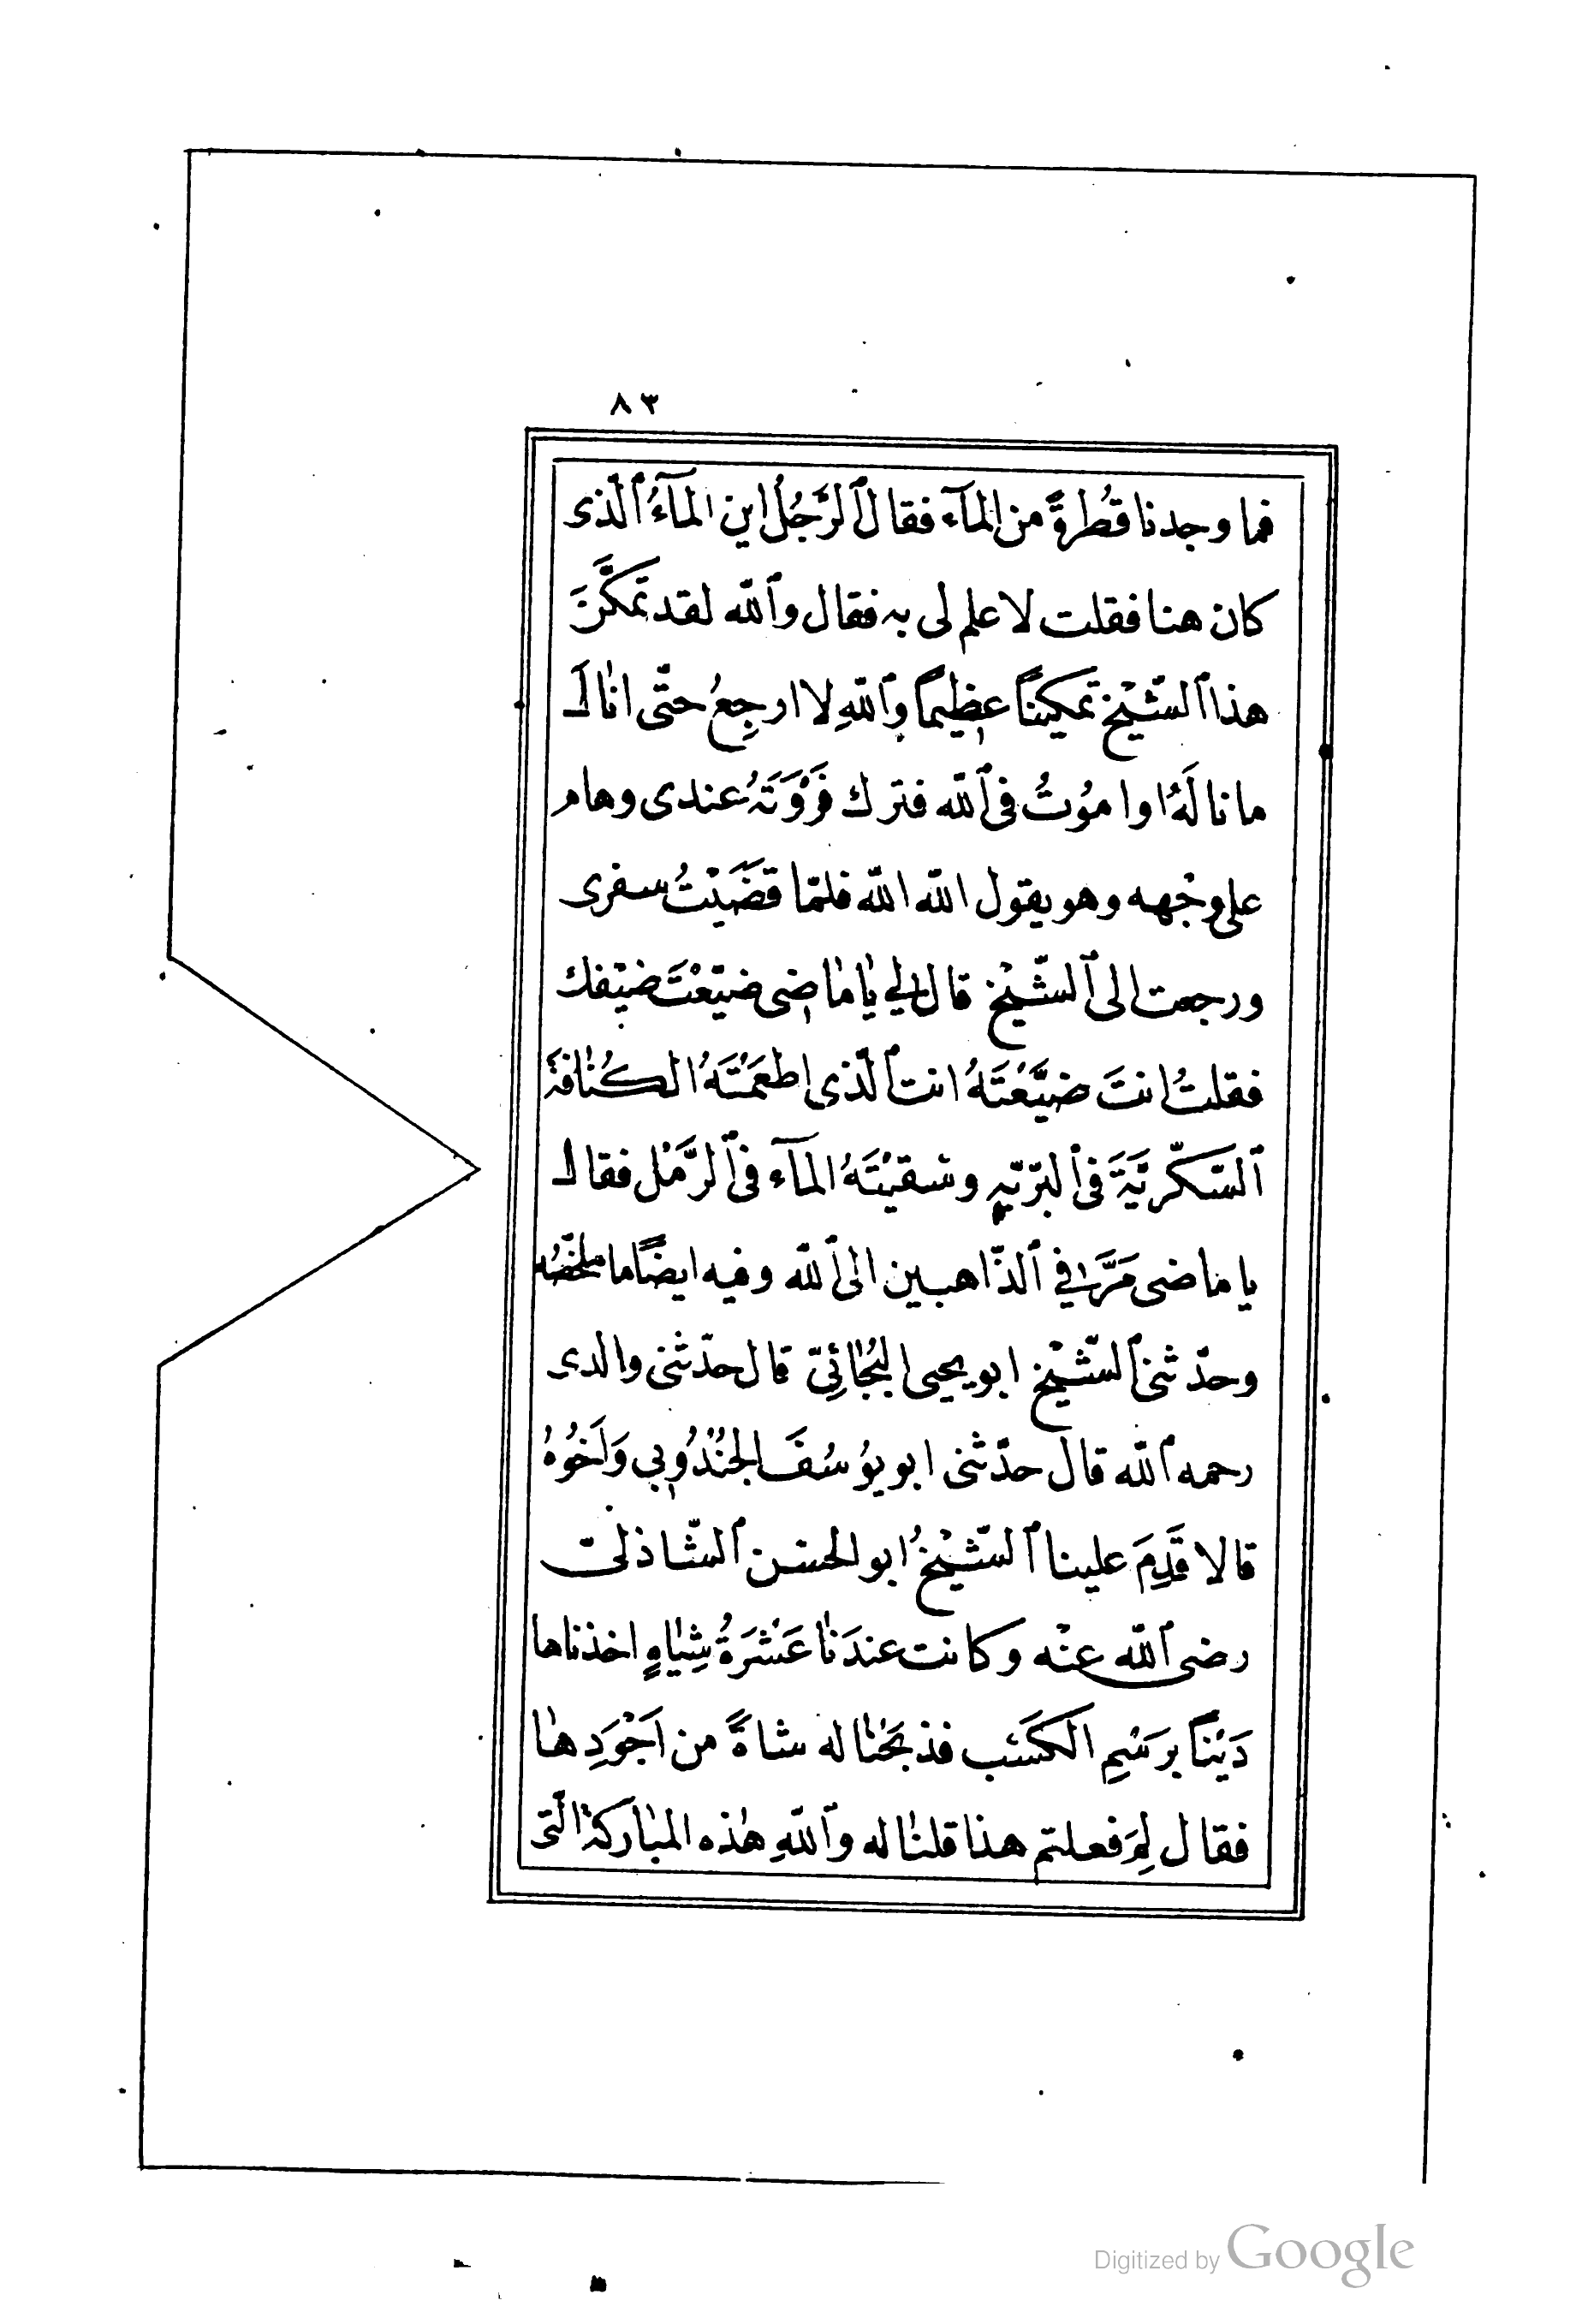 ٨٣
فما وجدنا قُطرةً من المآء فقال ٱلرَّجُلُ اين المآءُ ٱلّذى
كان هنا فقلت لا علم لى به فقال وٱللّه لقد تمكَّنَ
هذا ٱلشّيْخ تمكيناً عظِيماً وٱللّهِ لا ارجِعُ حتّى انال
ما نالَهُ او امُوتُ فى ٱللّه فترك فَرْوَتَهُ عندى وهام
على وجْهه وهو يقول اللّه اللّه فلمّا قضَيْتُ سفرى
ورجعت الى ٱلشّيْخ قال لي يا ماضِى ضيّعْتَ ضيْفك
فقلتُ انتَ ضيَّعْتَهُ انت ٱلّذى اطعَمْتَهُ الكُنافةَ
ٱلسّكّريَّةَ فى ٱلبرّيّهِ وسقيْتَهُ المآء فى ٱلرَّمْل فقال
يا ماضى مَرَّ في ٱلذّاهبين الى ٱللّه وفيه ايضًا ما ملخّصُه
وحدّثنى ٱلشّيْخ ابو يحيى البُجَائِىّ قال حدّثنى والدى
رحمه ٱللّه قال حدّثنى ابو يوُسُفَ الجُنْدُوبِي وَاَخُوُهُ
قالا قَدِمَ علينا ٱلشّيْخُ ابو الحسَن ٱلشّاذلىّ
رضى ٱللّه عنْه وكانت عندَنا عَشْرَةُ شِيَاهٍ اخذناها
دَيْنًا برَسْمِ الكَسْب فذبحْنا له شاةً من اَجْوَدِها
فقال لِمَ فعلتم هذا قلنا له وٱللّهِ هٰذه المبٰاركةُ الّتى
Digitized by Google